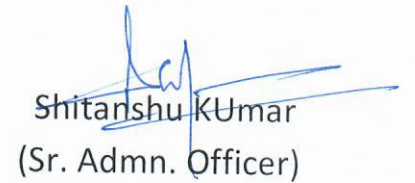 Shitanshu KUmar
(Sr. Admn. Officer)